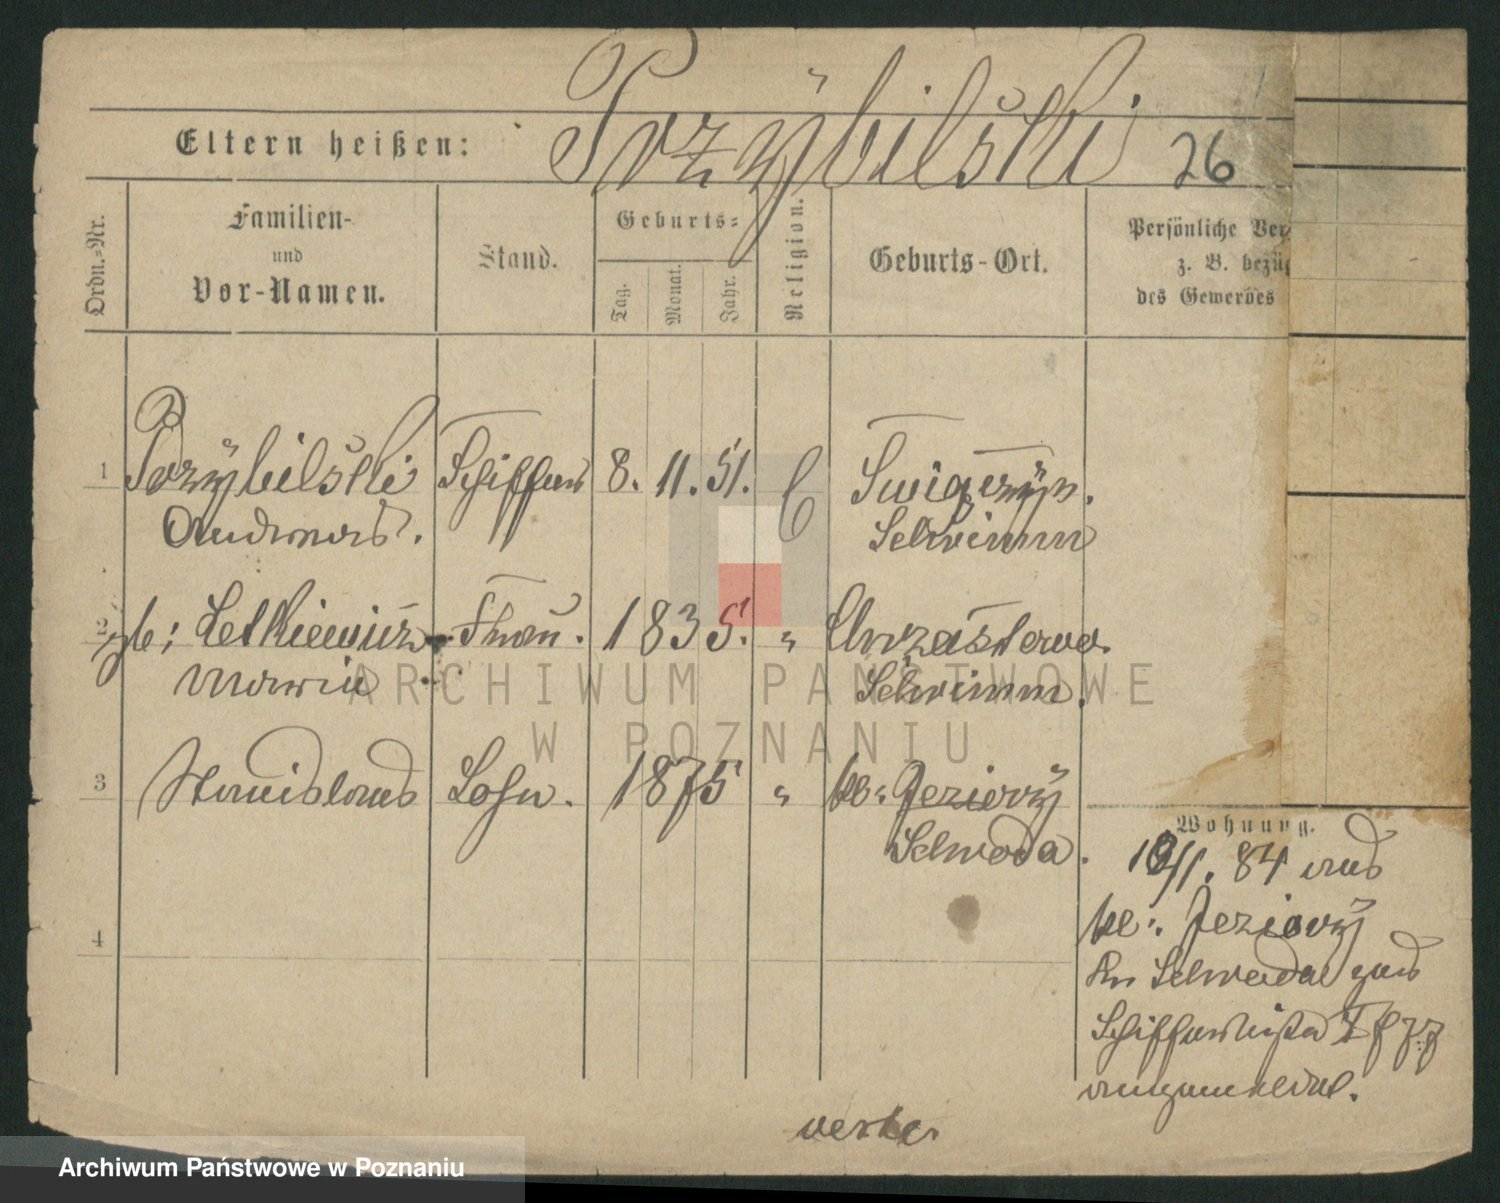 Eltern heißen: Przÿbilski 26
Ordn.-Nr.
Familien-
und
Vor-Namen.
Stand.
Geburts-
Tag.
Monat.
Jahr.
Religion.
Geburts-Ort.
Persönliche Ver
z. B. bezüg
des Gewerbes
1 Przÿbilski Schiffer 8. 11. 51. C
Andreas. Schrimm
2 gb: Letkiewicz Frau. 1835. " Chrzastowo.
Maria Schrimm.
3 Stanislaus Sohn. 1875 " kl: Jeziorÿ
Schroda.
4
Wohnung.
10/1. 84 aus
kl: Jeziorÿ
Kr Schroda zur
Schifferliste
angemeldet.
ARCHIWUM PAŃSTWOWE
W POZNANIU
Archiwum Państwowe w Poznaniu